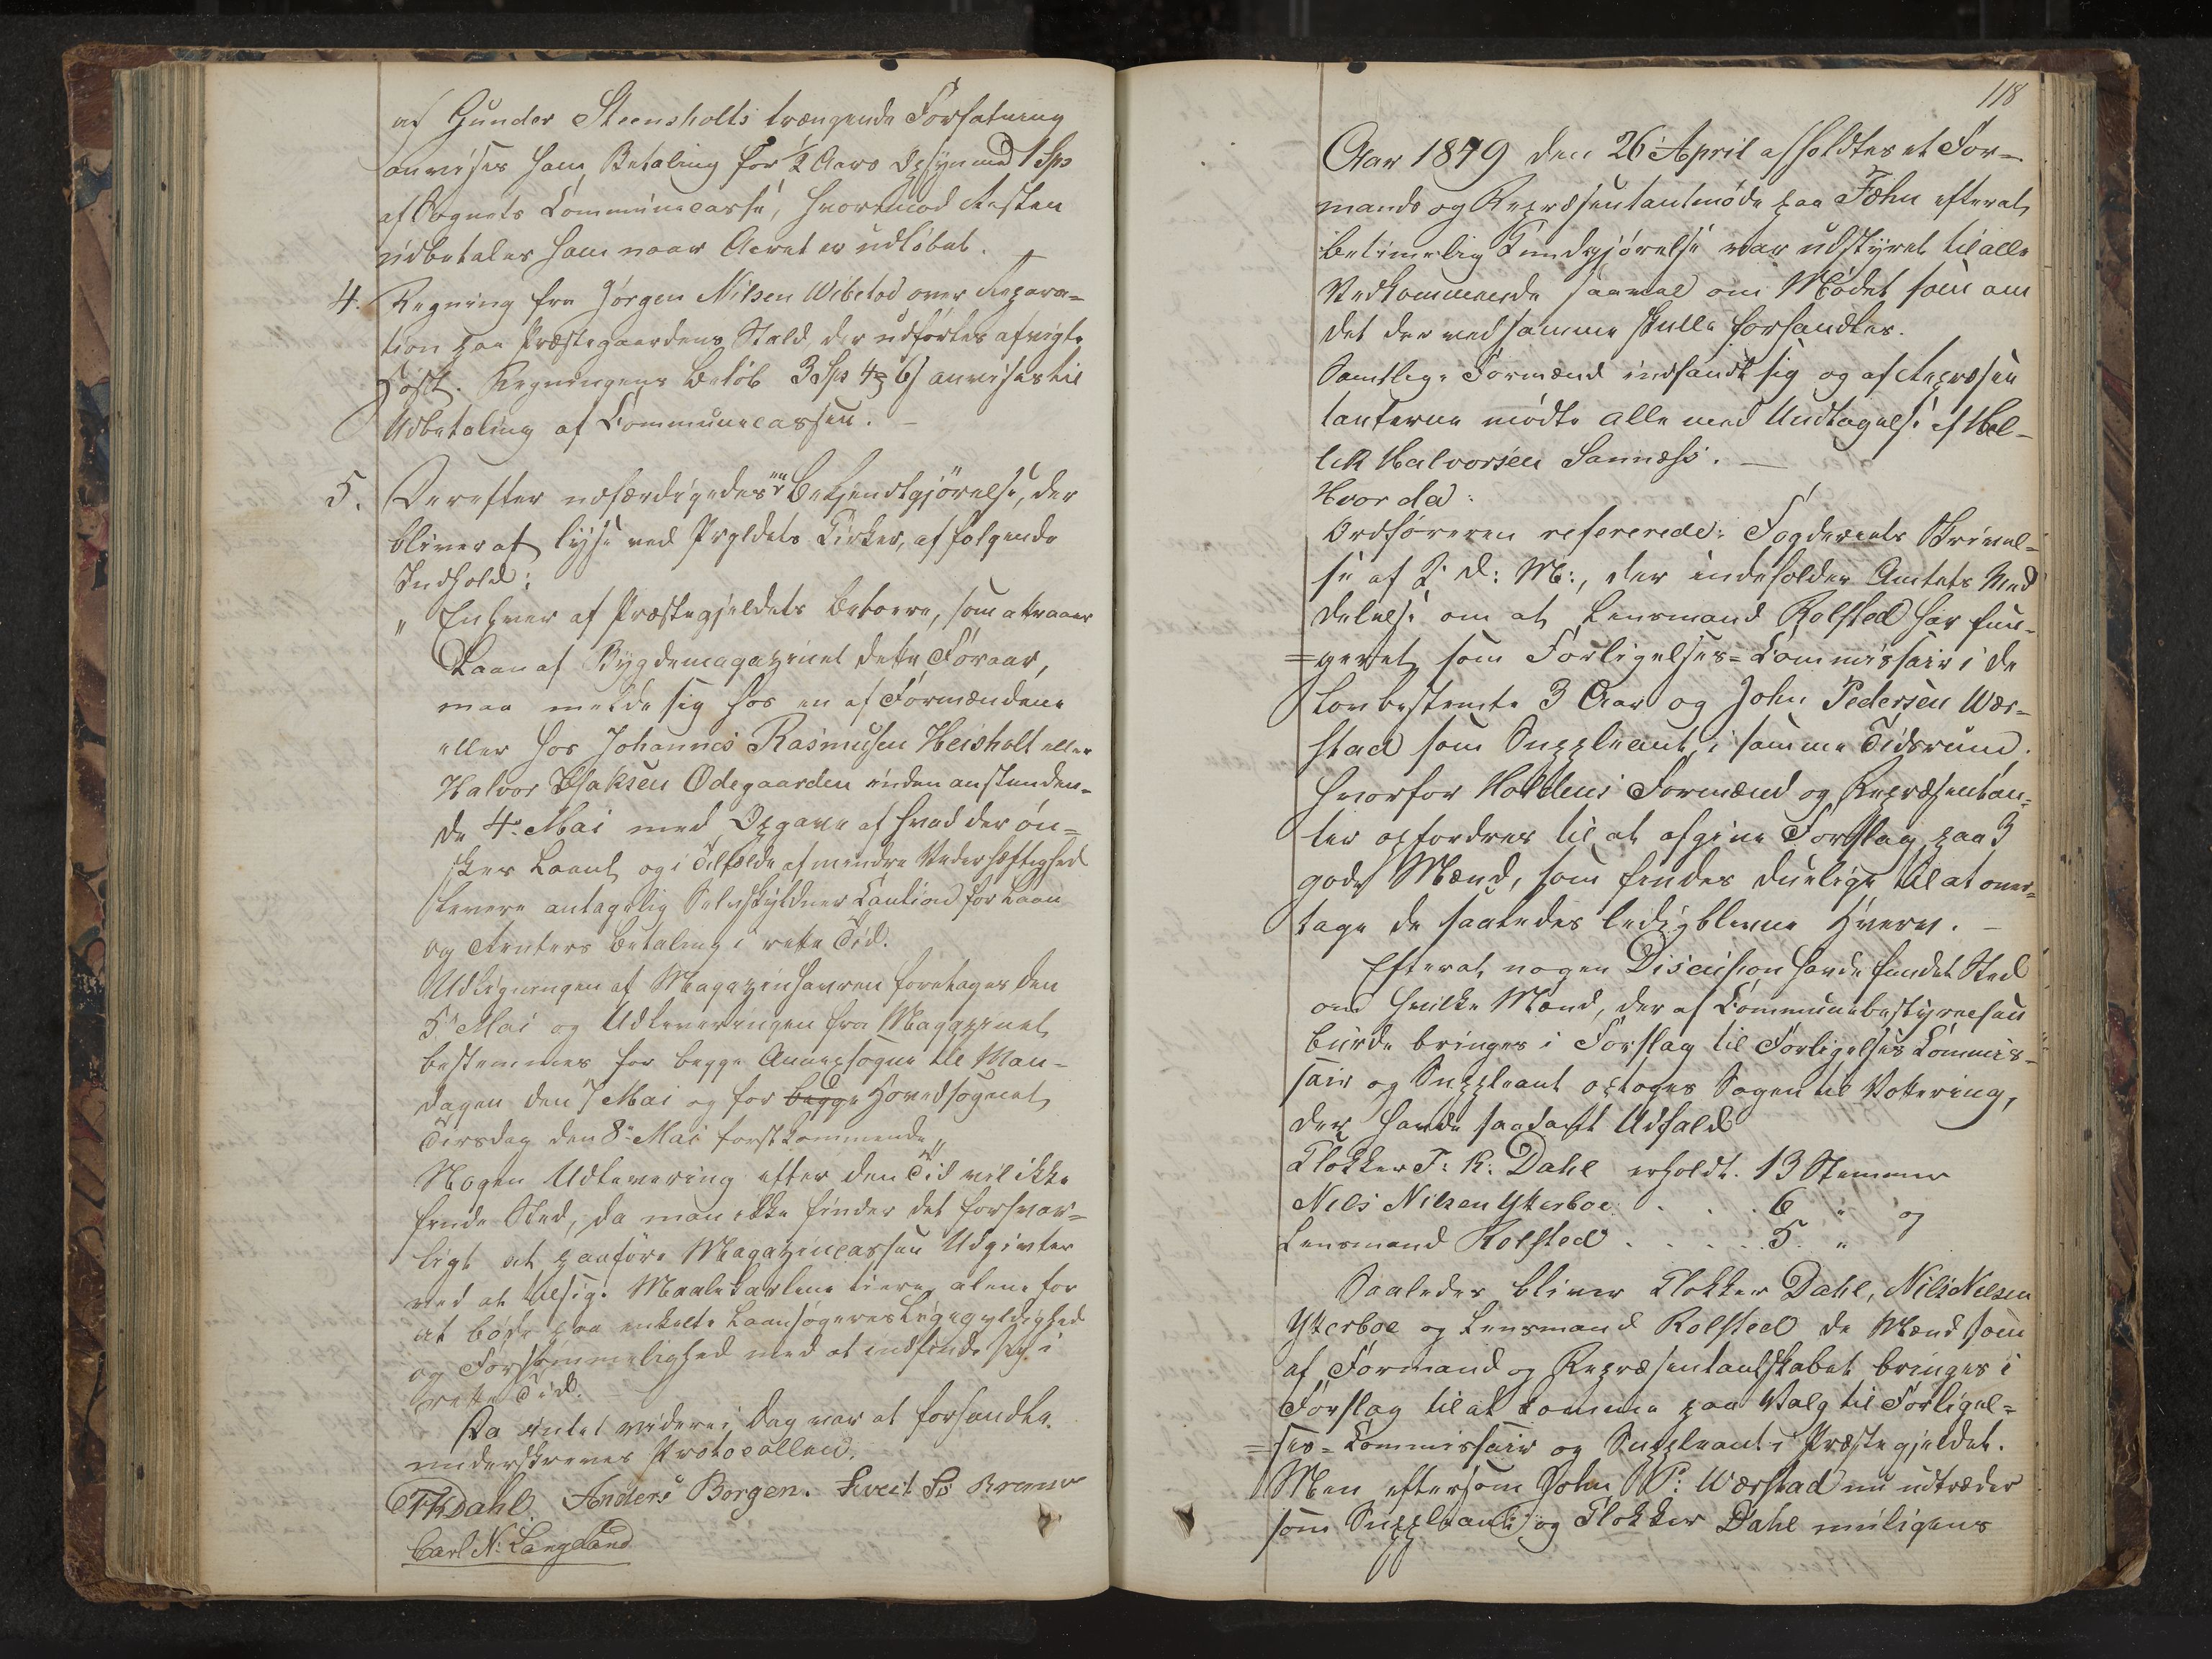 af Gunder Steensholts trængende Forfatning
anvises ham Betaling for ½ Aars Opsyn med 1 Sps
af Sognets Communecasse, hvorimod Resten
udbetales ham naar Aaret er udløbet.
4. Regning fra Jørgen Nilsen Wibetod over Repara=
tion paa Præstegaardens Stald, der udførtes afvigte
Høst. Regningens Beløb 3 Sps 4 6 s anvises til
Udbetaling af Communecassen. –
5. Derefter udfærdigedes en Bekjendtgjørelse, der
bliver at lyse ved Prgldets Kirker, af følgende
Indhold:
" Enhver af Præstegjeldets Beboere, som attraaer
Laan af Bygdemagazinet dette Foraar,
maa melde sig hos en af Formændene
eller hos Johannes Rasmusen Heisholt eller
Halvor Isaksen Ødegaarden inden anstunden=
de 4de Mai med Opgave af hvad der øn=
skes Laant og i Tilfælde af mindre Vederhæftighed
levere antagelig Selvskyldner Caution for Laan
og Renters Betaling i rette Tid.
Udligningen af Magazinhavren foretages den
5te Mai og Udleveringen fra Magazinet
bestemmes for begge Annexsogne til Man=
dagen den 7 Mai og for begge Hovedsognet
Tirsdag den 8de Mai førstkommende "
Nogen Udlevering efter den Tid vil ikke
finde Sted, da man ikke finder det forsvar=
ligt at paaføre Magazincassen Udgivter
ved at tilsige Maalekarlene tiere alene for
at bøde paa enkelte Laansøgeres Ligegyldighed
og Forsømmelighed med at indfinde sig i
rette Tid.
Da Intet videre i Dag var at forhandle
underskreves Protocollen.
TKDahl. Anders Borgen. Sveit
Carl N: Langeland
118
Aar 1849 den 26 April afholdtes et For=
mands og Repræsentantmøde paa Fæhn efterat
betimelig Kundgjørelse var udstyret til alle
Vedkommende saavel om Mødet som om
det der ved samme skulle forhandles.
Samtlige Formænd indfandt sig og af Repræsen
tanterne mødte alle med Undtagelse af Hel=
lek Halvorsen Sannæss. —
Hvor da:
Ordføreren refererede: Fogderiets Skrivel=
se af d: M:, der indeholder Amtets Med
delelse om at Lensmand Rolsted har fun=
=geret som Forligelses=Commissair i de
lovbestemte 3 Aar og John Pedersen Wær=
stad som Suppleant i samme Tidsrum.
hvorfor Holdens Formænd og Repræsentan=
ter opfordres til at afgive Forslag paa 3
gode Mænd, som findes duelige til at over=
tage de saaledes ledigblevne Hverv. –
Efterat nogen Discusion havde fundet Sted
om hvilke Mænd, der af Communebestyrelsen
burde bringes i Forslag til Forligelses Commis=
sair og Suppleant optoges Sagen til Votering,
der havde saadant Udfald
Klokker T: K: Dahl erholdt. 13 Stemmer
Nils Nilsen Ytterboe. . . . 6 " og
Lensmand Rolsted . . . . . 5. "
Saaledes bliver Klokker Dahl, Nils Nilsen
Ytterboe og Lensmand Rolsted de Mænd som
af Formand og Repræsentantskabet bringes i
Forslag til at komme paa Valg til Forligel=
=ses=Commissair og Suppleant i Præstegjeldet.
Men eftersom John P: Wærstad nu udtræder
som Suppleant og Klokker Dahl muligens